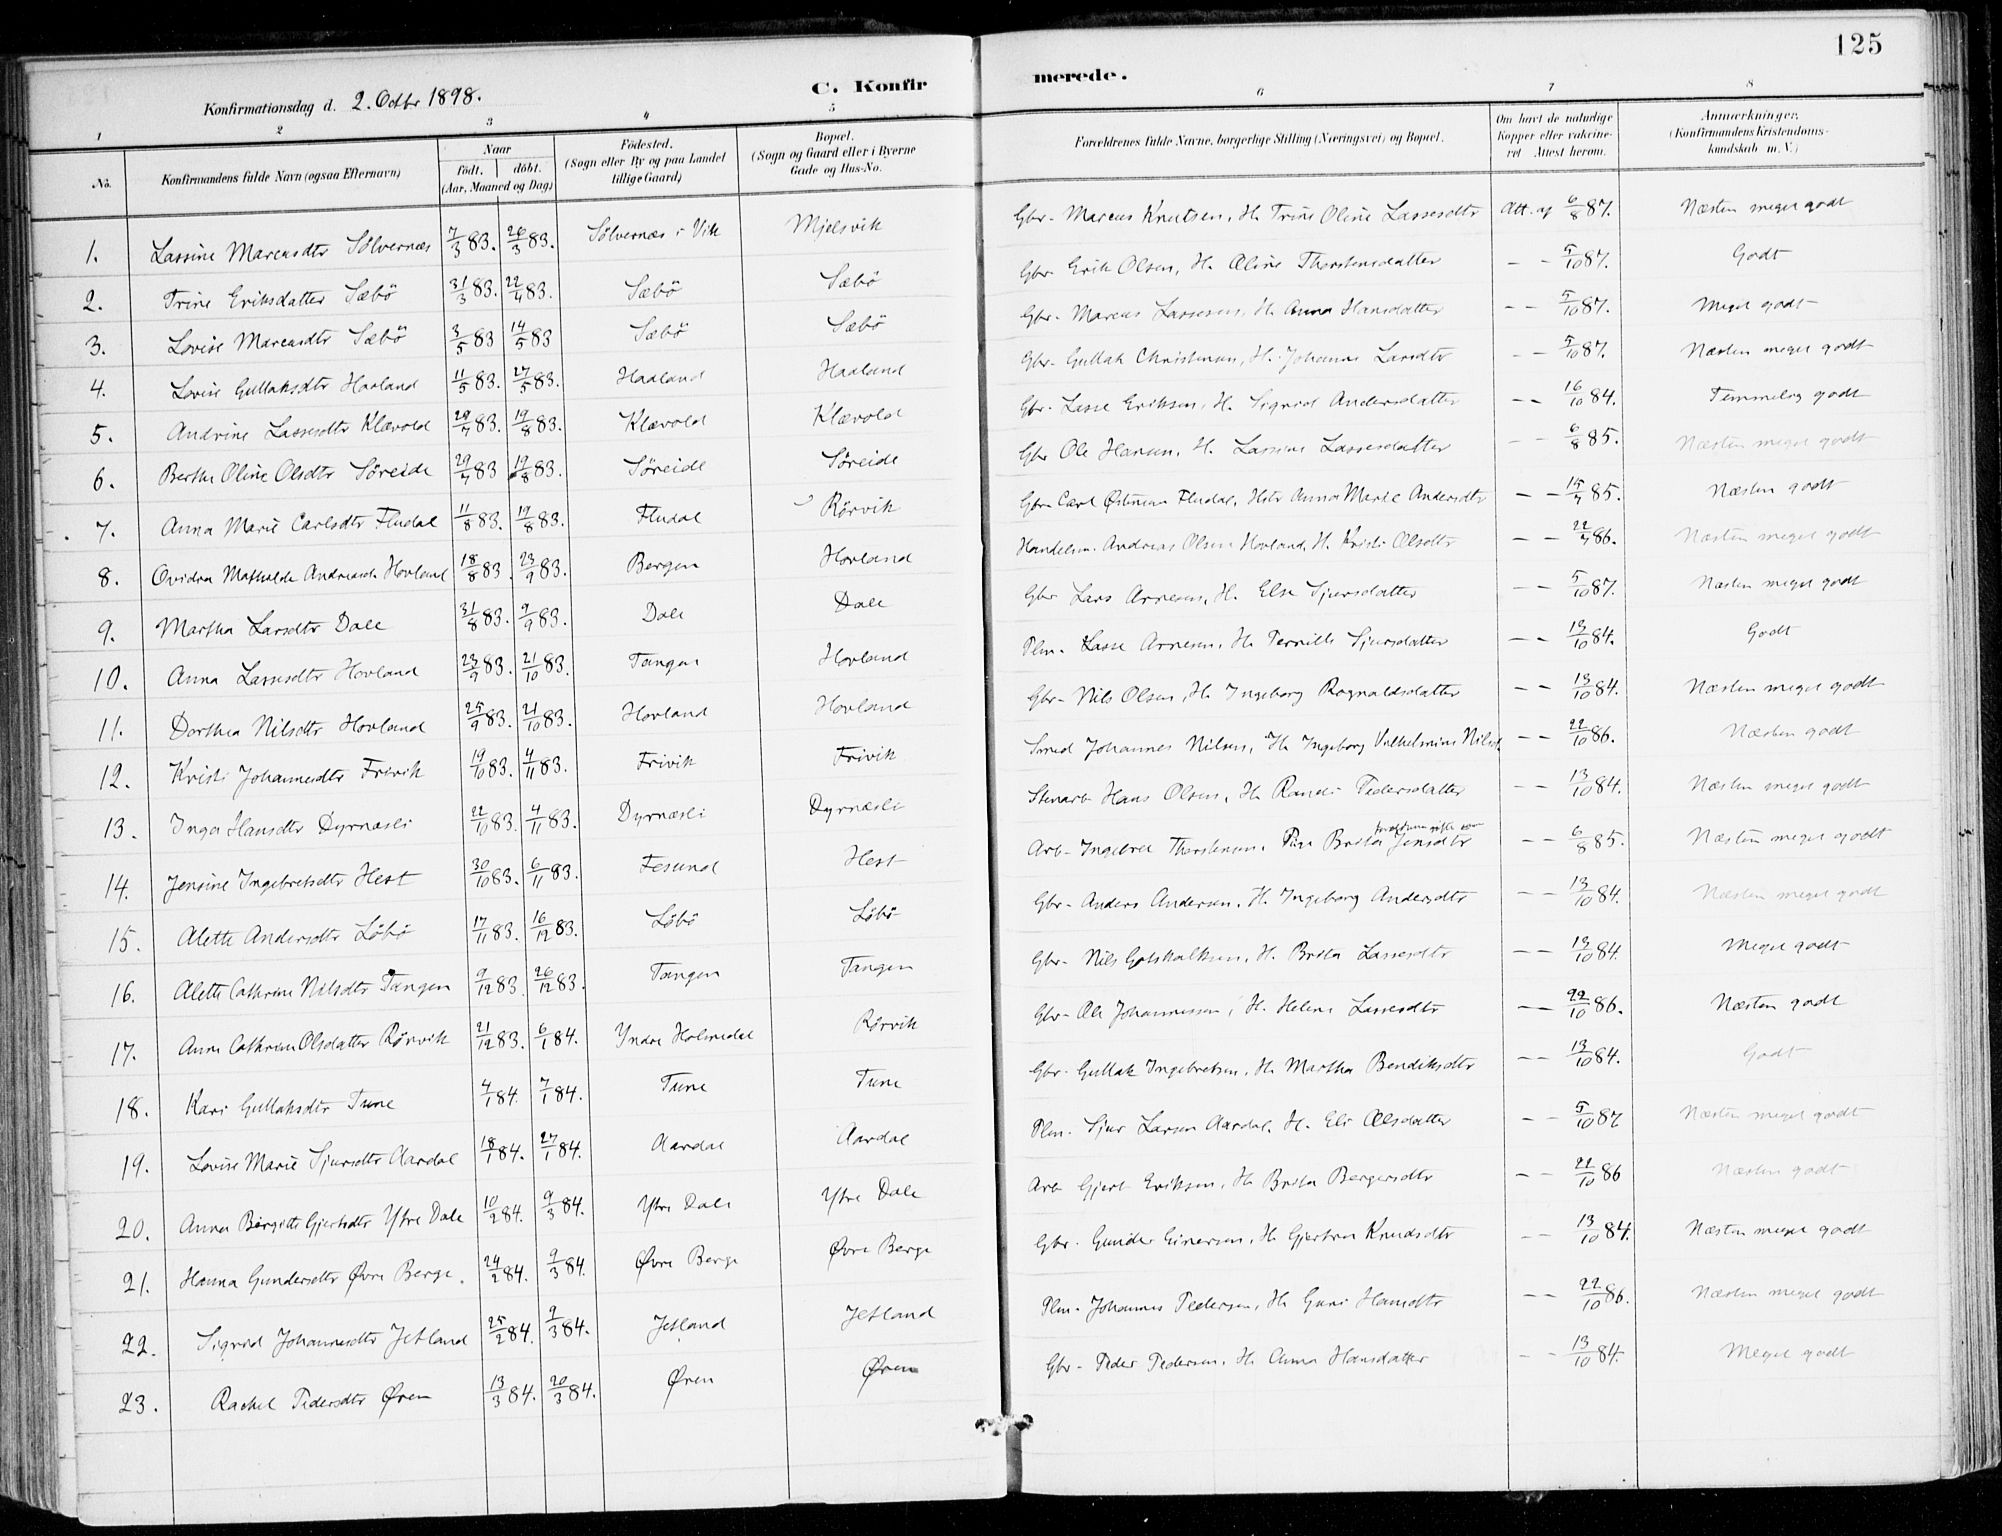 125
C. Konfirmerede.
Konfirmationsdag d. 2. Octbr 1898.
1 2 3 4 5 6 7 8
No. Konfirmandens fulde Navn (ogsaa Efternavn) Naar født. døbt. (Aar, Maaned og Dag) Fødested. (Sogn eller By og paa Landet tillige Gaard) Bopæl. (Sogn og Gaard eller i Byerne Gade og Hus-No. Forældrenes fulde Navne, borgerlige Stilling (Næringsvei) og Bopæl. Om havt de naturlige Kopper eller vakcineret. Attest herom. Anmærkninger. (Konfirmandens Kristendomskundskab m. V.)
1. Lassine Marcusdtr Sølvernæs 7/3 83. 26/3 83. Sølvernæs i Vik Mjelsvik Gbr. Marcus Knutsen, H. Trine Oline Lassesdtr Att. af 6/8 87. Næsten meget godt
2. Trine Eriksdatter Sæbö 31/3 83. 22/4 83. Sæbö Sæbö Gbr. Erik Olsen, H. Oline Thorstensdatter - - 5/10 87. Godt
3. Lovise Marcusdtr Sæbö 3/5 83 14/5 83 Sæbö Sæbö Gbr. Marcus Lassesen, H. Anna Hansdatter - - 5/10 87. Meget godt
4. Lovise Gullaksdtr Haaland 11/5 83. 27/5 83. Haaland Haaland Gbr. Gullak Christensen, H. Johanne Larsdtr - - 5/10 87. Næsten meget godt
5. Andrine Lassesdtr Klævold 29/7 83. 19/8 83. Klævold Klævold Gbr. Lasse Eriksen, H. Sigrid Andersdatter - - 16/10 84. Temmelig godt
6. Berthe Oline Olsdtr Søreide 29/7 83 19/8 83. Søreide Søreide Gbr Ole Hansen, H. Lassine Lassesdatter - - 6/8 85. Næsten meget godt
7. Anna Marie Carlsdtr Fludal 11/8 83. 19/8 83. Fludal Rørvik Gbr. Carl Fludal, Anna Marie Andersdtr - - 15/7 85. Næsten godt
8. Mathilde Andreasd. Hovland 18/8 83. 23/9 83. Bergen Hovland Handelsm. Andreas Olsen Hovland, H. Kristi Olsdtr - - 22/7 86. Næsten meget godt
9. Martha Larsdtr Dale 31/8 83. 9/9 83. Dale Dale Gbr Lars Arnesen, H. Else Sjursdatter - - 5/10 87. Næsten meget godt
10. Anna Lassesdtr Hovland 23/9 83. 21/10 83. Tangen Hovland Plm. Lasse Arnesen, H. Pernille Sjursdatter - - 13/10 84. Godt
11. Dorthea Nilsdtr Hovland 25/9 83. 21/10 83. Hovland Hovland Gbr. Nils Olsen, H. Ingeborg Rognaldsdatter - - 13/10 84. Næsten meget godt
12. Kristi Johannesdtr Frivik 19/10 83. 4/11 83. Frivik Frivik Smed Johannes Nilsen, H. Ingeborg Vilhelmine Nilsd. - - 22/10 86. Næsten godt
13. Inga Hansdtr Dyrnæsli 22/10 83. 4/11 83. Dyrnæsli Dyrnæsli Stenarb Hans Olsen, H. Randi Pedersdatter - - 13/10 84. Næsten meget godt
14. Jensine Ingebretsdtr Hest 30/10 83. 6/11 83. Fesund Hest Arb. Ingebret Thorstensen, Pige Brita Jensdtr - - 6/8 85. Næsten meget godt
15. Alette Andersdtr Løbö 17/11 83. 16/12 83. Løbö Løbö Gbr. Anders Andersen, H. Ingeborg Andersdtr - - 13/10 84. Næsten meget godt
16. Alette Cathrine Nilsdtr Tangen 9/12 83. 26/12 83. Tangen Tangen Gbr. Nils Gotskalksen, H. Brita Lassesdtr - - 13/10 84. Meget godt
17. Anne Cathrine Olsdatter Rørvik 21/12 83. 6/1 84. Yndre Holmedal Rørvik Gbr. Ole Johannessen, H. Helene Lassesdtr - - 22/10 86. Næsten godt
18. Kari Gullaksdtr Tune 4/1 84. 7/1 84. Tune Tune Gbr. Gullak Ingebretsen, H. Martha Bendiksdtr - - 13/10 84. Godt
19. Lovise Marie Sjursdtr Aardal 18/1 84. 27/1 84. Aardal Aardal Plm. Sjur Larsen Aardal, H. Eli Olsdatter - - 5/10 87 Næsten meget godt
20. Anna Birgitte Gjertsdtr Ytre Dale 10/2 84. 9/3 84. Ytre Dale Ytre Dale Arb Gjert Eriksen, H. Brita Bergersdtr - - 22/10 86 Næsten godt
21. Hanna Gundersdtr Øvre Berge. 24/2 84. 9/3 84. Øvre Berge Øvre Berge Gbr. Gunder Einersen, H. Gjertrud Knudsdtr - - 13/10 84. Næsten meget godt
22. Sigrid Johannesdtr Jetland 25/2 84. 9/3 84. Jetland Jetland Plm. Johannes Pedersen, H. Guri Hansdtr - - 22/10 86. Næsten meget godt
23. Rachel Pedersdtr Øren 13/3 84. 20/3 84. Øren Øren Gbr. Peder Pedersen, H. Anna Hansdatter - - 13/10 84. Meget godt